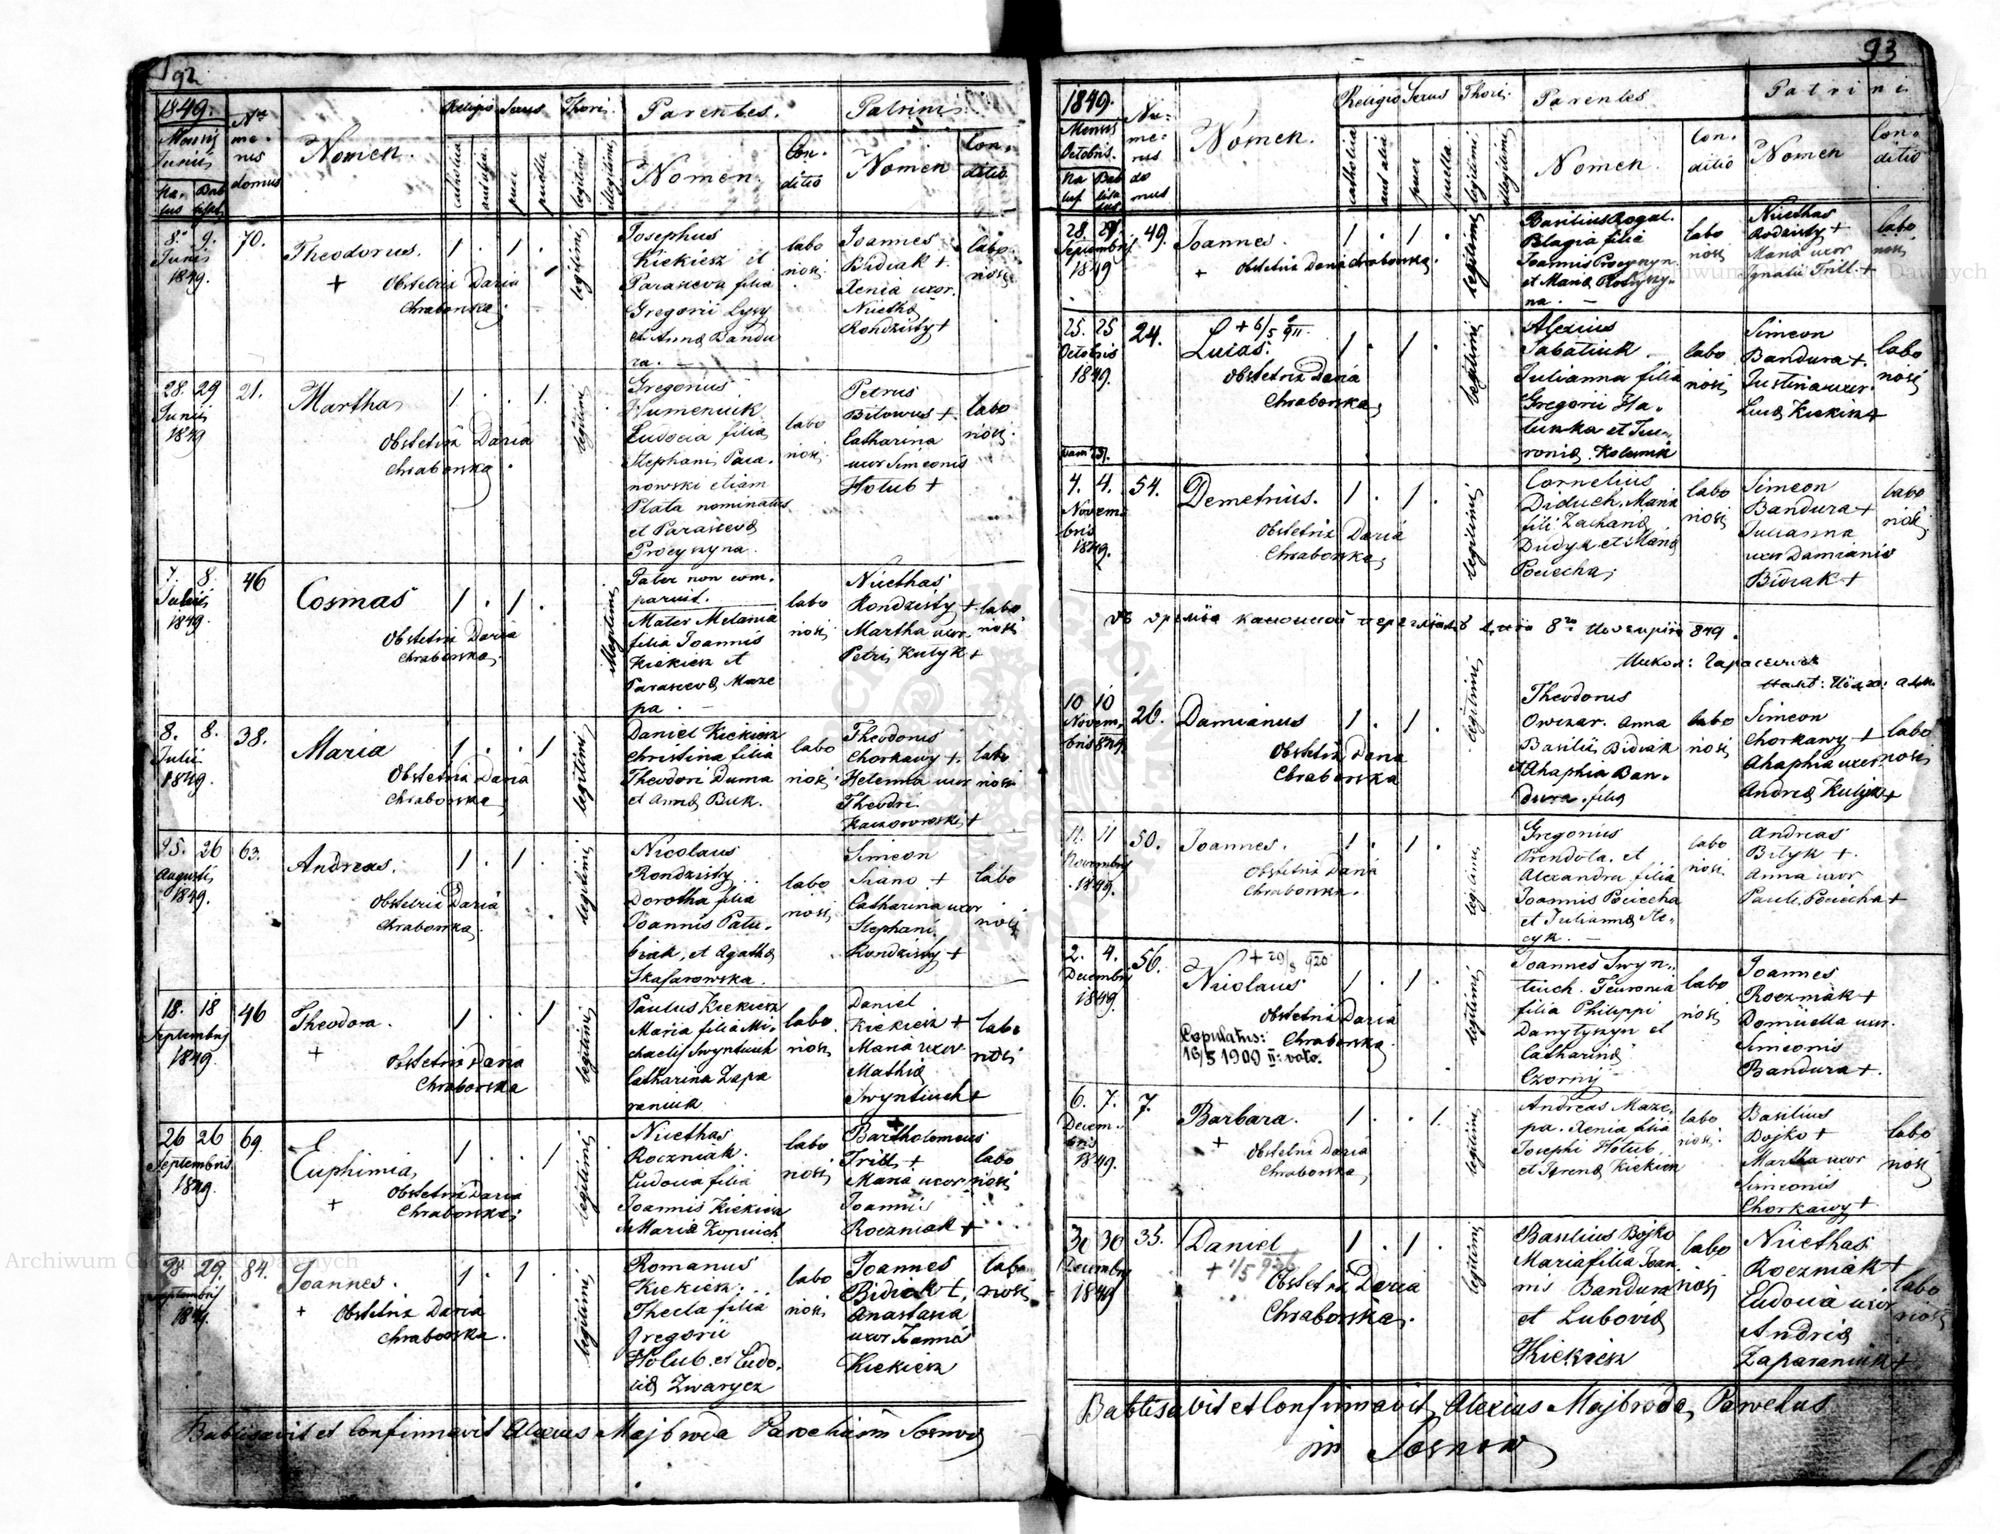 92
1849.
Mensis
Junii
Na-
tus
Bab
tisat.
Nu
me-
rus
domus
Nomen.
Religio
Sexus
Thori
catholica
aut alia
puer
puella
legitimi
illegitimi
Parentes.
Nomen.
Con-
ditio
Patrini
Nomen
Con-
ditio
8. 9.
Junii
1849.
70.
Theodorus.
+ Obstetrix Daria
Chraborska
1 . 1 .
legitimi
Josephus
Kiekisz et
Parasceva filia
Gregorii Lysy
et Anna Bandu
ra. —
labo
riosi
Joannes
Bidiak +
Xenia uxor
Nicetha
Rondzisty +
labo
riosi
28. 29
Junii
1849
21.
Martha
Obstetrix Daria
Chraborska
1 . . 1
legitimi
Gregorius
Humeniuk
Eudocia filia
Stephani Para-
nowski etiam
Plata nominatus
et Parasceva
Procyszyna.
labo
riosi
Petrus
Bilowus +
Catharina
uxor Simeonis
Holub +
labo
riosi
7. 8.
Julii
1849.
46
Cosmas
Obstetrix Daria
Chraborska
1 . 1 .
illegitimi
Pater non com-
paruit.
Mater Melania
filia Joannis
Kiekisz et
Parasceva Maze
pa. —
labo
riosi
Nicethas
Rondzisty +
Martha uxor
Petri Kulyk +
labo
riosi
8. 8.
Julii
1849.
38.
Maria
Obstetrix Daria
Chraborska
1 . . 1
legitimi
Daniel Kiekisz
Christina filia
Theodori Duma
et Anna Buk.
labo
riosi
Theodorus
Chorkawy +
Helena uxor
Theodri
Kaczorowski +
labo
riosi
25. 26
Augusti
1849.
63.
Andreas.
Obstetrix Daria
Chraborska
1 . 1 .
legitimi
Nicolaus
Rondzisty
Dorotha filia
Joannis Patu-
biak, et Agatha
Skasarowska.
labo
riosi
Simeon
Szano +
Catharina uxor
Stephani
Rondzisty +
labo
riosi
18. 18
Septembris
1849.
46
Theodora.
+
Obstetrix Daria
Chraborska
1 . . 1
legitimi
Paulus Kiekisz
Maria filia Mi-
chaelis Swyntiuch
Catharina Zapa
raniuk
labo
riosi
Daniel
Kiekisz +
Maria uxor
Mathia
Swyntiuch +
labo
riosi
26 26
Septembris
1849.
69.
Euphimia,
+ Obstetrix Daria
Chraborska
1 . . 1
legitimi
Nicethas
Roczniak.
Eudocia filia
Joannis Kiekisz
et Maria
labo
riosi
Bartholomeus
Trill +
Maria uxor
Joannis
Roczniak +
labo
riosi
28. 29.
Septembris
1849.
84.
Joannes.
+ Obstetrix Daria
Chraborska.
1 . 1 .
legitimi
Romanus
Kiekisz.
Thecla filia
Gregorii
Holub. et Eudo-
cia Zwarycz
labo
riosi
Joannes
Bidiak +,
Anastasia
uxor Joannis
Kiekisz
labo
riosi
Babtisavit et Confirmavit Alexius Majbroda Parochus in Sosnow
93
1849.
Mensis
Octobris.
Na
tus
Bab
tisa
tus
Nu-
me-
rus
do
mus
Nomen.
Religio
Sexus
Thori.
catholica
aut alia
puer
puella.
legitimi.
illegitimi.
Parentes
Nomen.
Con-
ditio
Patrini
Nomen
Con-
ditio
28. 29.
Septembris
1849
49.
Joannes.
+ Obstetrix Daria Chraborska.
1 . 1 .
legitimi
Basilius Rogal.
Pelagia filia
Joannis Procyszyn
et Maria
na. —
labo
riosi
Nicethas
Rodzisty +
Maria uxor
Ignatii Trill +
labo
riosi
25. 25
Octobris
1849.
24.
+ 6/5 911.
Lucas.
Obstetrix Daria
Chraborska
1 . 1 .
legitimi
Alexius
Sabatiuk
Julianna filia
Gregorii Ha-
luszka et Feu-
ronia. Kolesnik
labo
riosi
Simeon
Bandura +
Justina uxor
Luca Kiekisz +
labo
riosi
4. 4.
Novem-
bris
1849.
54.
Demetrius.
Obstetrix Daria
Chraborska
1 . 1 .
legitimi
Cornelius
Diduch. Maria
filii Zacharia
Dudyk et Maria
Pociecha
labo
riosi
Simeon
Bandura +
Julianna
uxor Damianis
Bidiak +
labo
riosi
10 10
Novem-
bris 849.
26.
Damianus
Obstetrix Daria
Chraborska
1 . 1 .
legitimi
Theodorus
Owczar. Anna
Basilii Bidiak
et Ahaphia Ban-
dura. filia
labo
riosi
Simeon
Chorkawy +
Ahaphia uxor
Andrea Kulyk +
labo
riosi
11. 11
Novembris
1849.
50.
Joannes.
Obstetrix Daria
Chraborska.
1 . 1 .
legitimi
Gregorius
Prendota. et
Alexandra filia
Joannis Pociecha
et Julianna Ste-
cyk. —
labo
riosi
Andreas
Bilyk +.
Anna uxor
Pauli Pociecha +
2. 4.
Decembris
1849.
56.
+ 29/8 920
Nicolaus
Obstetrix Daria
Chraborska
Copulatus:
16/5 1909 II: voto.
1 . 1 .
legitimi
Joannes Swyn-
tiuch. Feuronia
filia Philippi
Danylyszyn et
Catharina
Czorny
labo
riosi
Joannes
Roczniak +
Domicella uxor.
Simeonis
Bandura +.
6. 7.
Decem-
bris
1849.
7.
Barbara.
+ Obstetrix Daria
Chraborska
1 . . 1
legitimi
Andreas Maze-
pa. Xenia filia
Josephi Holub,
et Irena Kiekisz
labo
riosi
Basilius
Bojko +
Martha uxor
Simeonis
Chorkawy +
labo
riosi
30 30
Decembris
1849
35.
Daniel
+ 1/5 926
Obstetrix Daria
Chraborska.
1 . 1 .
legitimi
Basilius Bojko
Maria filia Joan-
nis Bandura
et Lubovia
Kiekisz
labo
riosi
Nicethas
Roczniak +
Eudocia uxor
Andrea
Zaparaniuk +
labo
riosi
Babtisavit et Confirmavit Alexius Majbroda, Parochus
in Sosnow
Archiwum Główne Akt Dawnych